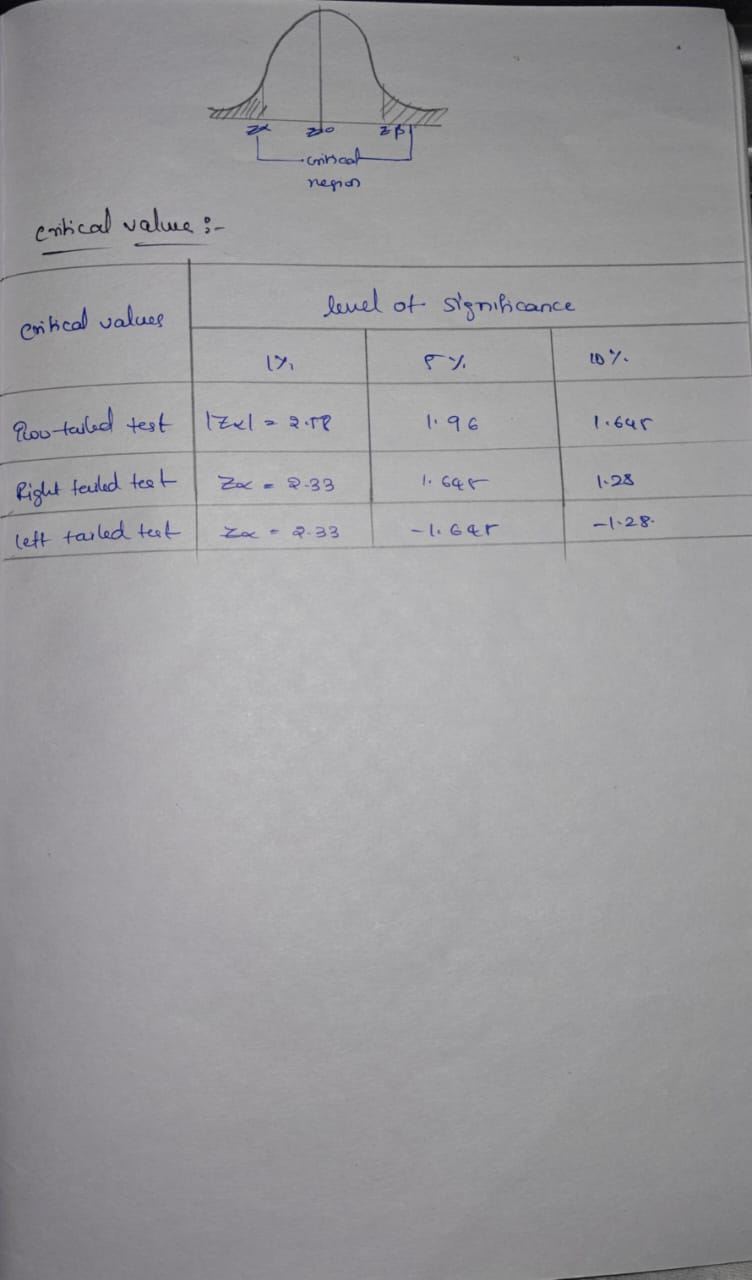 zα z=0 zβ
critical
region
critical value :-
critical values level of significance
1% 5% 10%
Two-tailed test |Zα| = 2.58 1.96 1.645
Right tailed test Zα = 2.33 1.645 1.28
left tailed test Zα = 2.33 -1.645 -1.28.